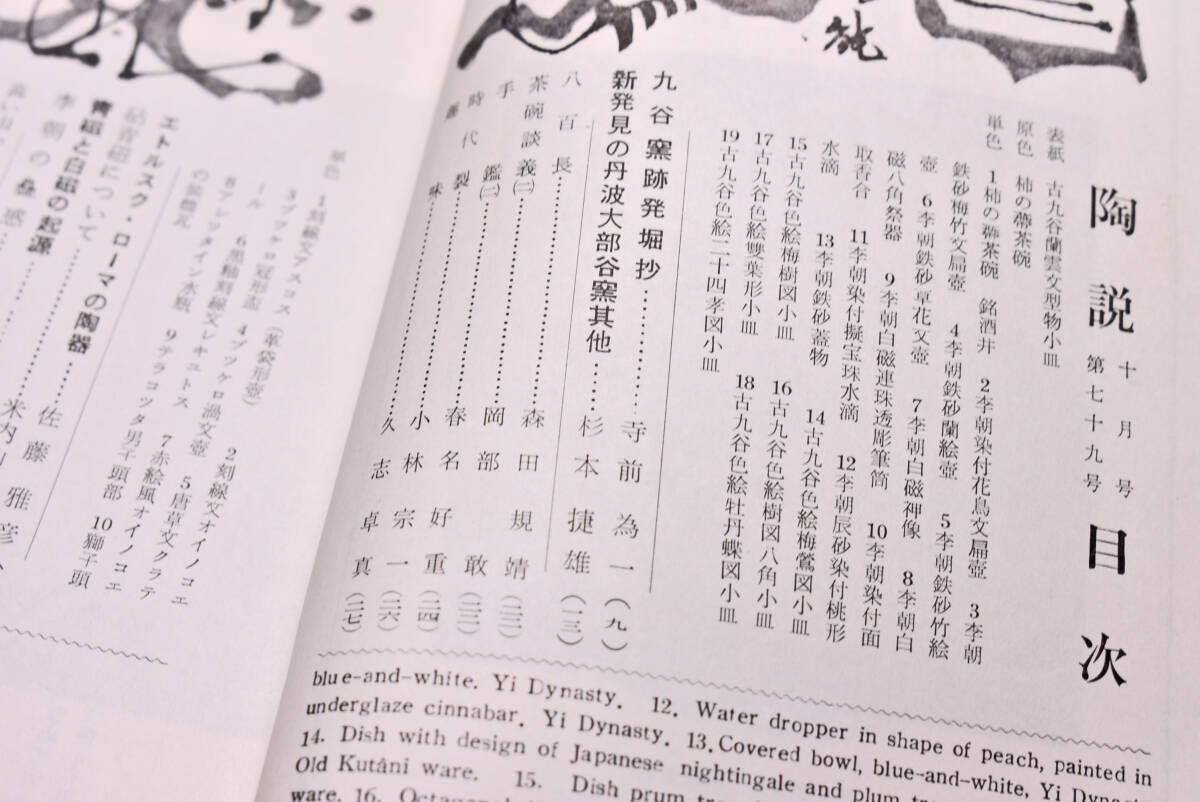 純
陶説 十月号 第七十九号 目次
表紙 古九谷蘭雲文型物小皿
原色 柿の蔕茶碗
単色 1柿の蔕茶碗 銘酒井 2李朝染付花鳥文扁壺 3李朝
鉄砂梅竹文扁壺 4李朝鉄砂蘭絵壺 5李朝鉄砂竹絵
壺 6李朝鉄砂草花文壺 7李朝白磁神像 8李朝白
磁八角祭器 9李朝白磁連珠透彫筆筒 10李朝染付面
取香合 11李朝染付擬宝珠水滴 12李朝辰砂染付桃形
水滴 13李朝鉄砂蓋物 14古九谷色絵梅鶯図小皿
15古九谷色絵梅樹図小皿 16古九谷色絵樹図八角小皿
17古九谷色絵雙葉形小皿 18古九谷色絵牡丹蝶図小皿
19古九谷色絵二十四孝図小皿
九谷窯跡発掘抄…………寺前為一(九)
新発見の丹波大部谷窯其他……杉本捷雄(一三)
八百長…………森田規靖(二二)
茶碗談義(二)…………岡部敢(二三)
手鑑(二)…………春名好重(二四)
時代裂…………小林宗一(二六)
味…………久志卓真(二七)
blue-and-white. Yi Dynasty. 12. Water dropper in shape of peach, painted in
underglaze cinnabar. Yi Dynasty. 13. Covered bowl, blue-and-white, Yi
14. Dish with design of Japanese nightingale and plum
Old Kutâni ware. 15. Dish prum
ware. 16.
単色 1刻線文アスコス(革袋形壺) 2刻線文オイノコエ
3ブッケロ冠形盃 4ブッケロ渦文壺 5唐草文クラテ
ール 6黒釉刻線文レキュトス 7赤絵風オイノコエ
8アレッタイン水瓶 9テラコッタ男子頭部 10獅子頭
の装飾瓦
エトルスク・ローマの陶器…………佐藤雅彦
砧青磁について…………米内山
青磁と白磁の起源
李朝の